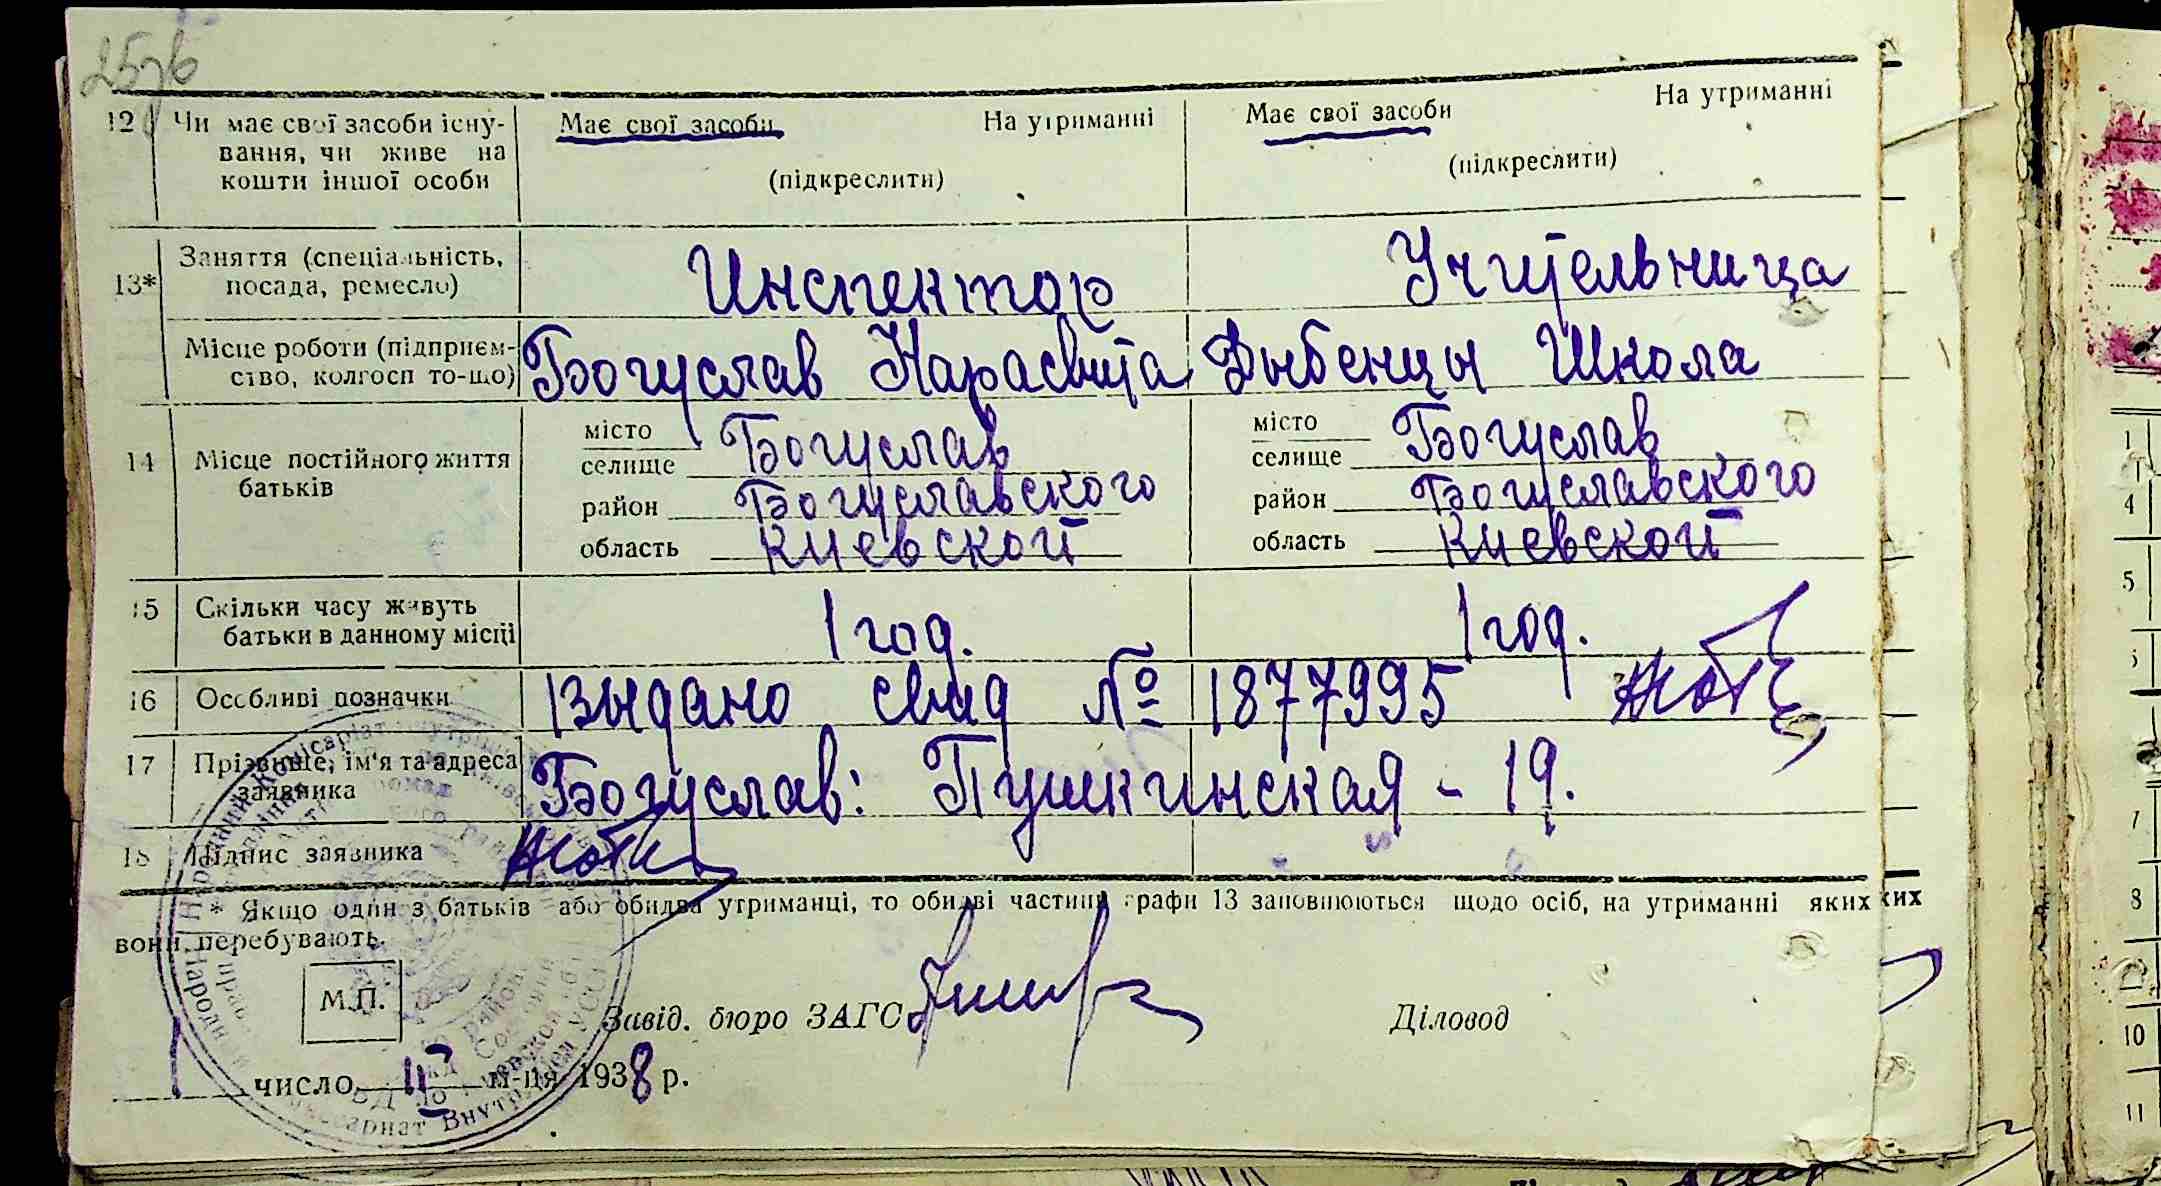 12 Чи має свої засоби існу- Має свої засоби На утриманні Має свої засоби На утриманні
вання, чи живе на
кошти іншої особи (підкреслити) (підкреслити)
13* Заняття (спеціальність, Инспектор Учительница
посада, ремесло)
Місце роботи (підприєм- Богуслав Нарасвита Дыбенцы Школа
ство, колгосп то-що)
14 Місце постійного життя місто Богуслав місто Богуслав
батьків селище селище
район Богуславского район Богуславского
область Киевской область Киевской
15 Скільки часу живуть 1 год. 1 год.
батьки в данному місці
16 Особливі позначки Выдано свид № 1877995
17 Прізвище, ім'я та адреса Богуслав: Пушкинская - 19.
заявника
18 Підпис заявника
* Якщо один з батьків або обидва утриманці, то обидві частини графи 13 заповнюються щодо осіб, на утриманні яких
вони перебувають.
М.П.
Завід. бюро ЗАГС Діловод
1 число II м-ця 1938 р.